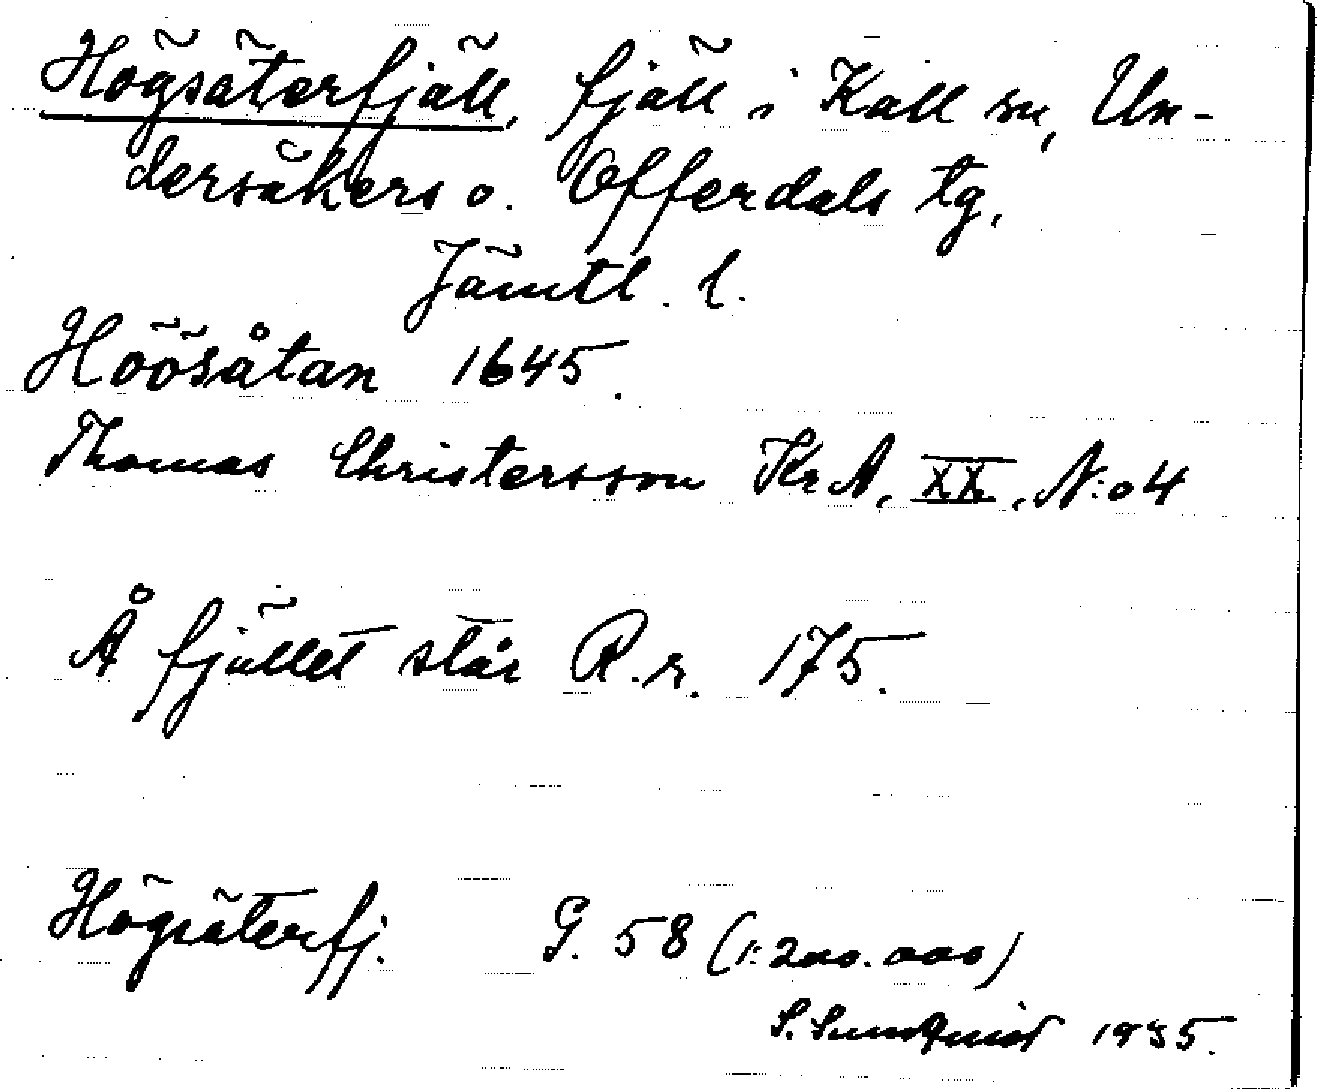 Högsäterfjäll, fjäll i Kall sn, Un-
dersåkers o. Offerdals tg,
Jämtl. l.
Höösåtan 1645.
Thomas Christersson KrA, XX, N:o 4
Å fjället står R.r. 175.
Högsäterfj. G. 58 (1:200.000)
S. Sundquist 1935.